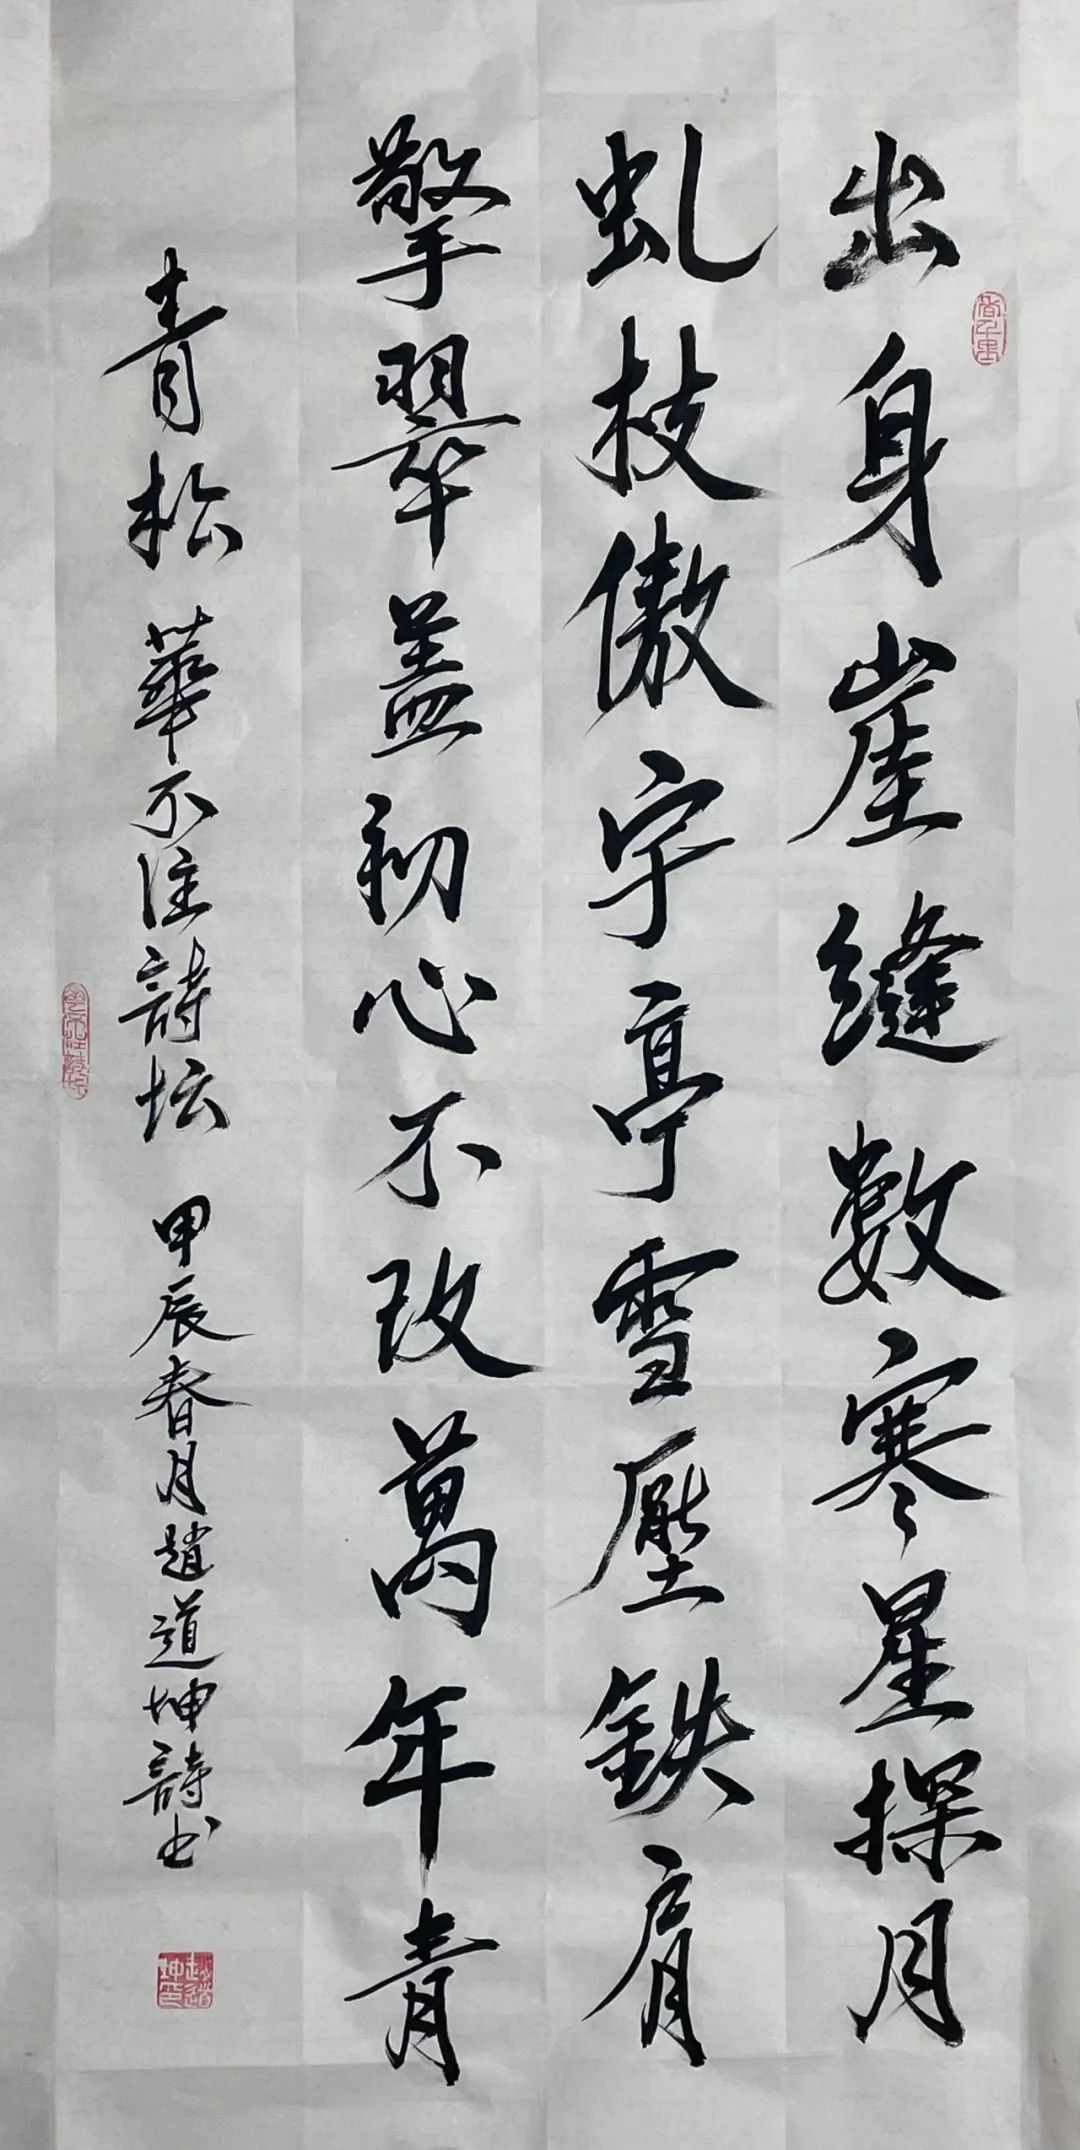 出身崖縫數寒星探月
虬枝傲宇亭雪壓鉄肩
擎翠蓋初心不改萬年青
青松 華不注詩坛 甲辰春月趙道坤詩书
趙道坤印